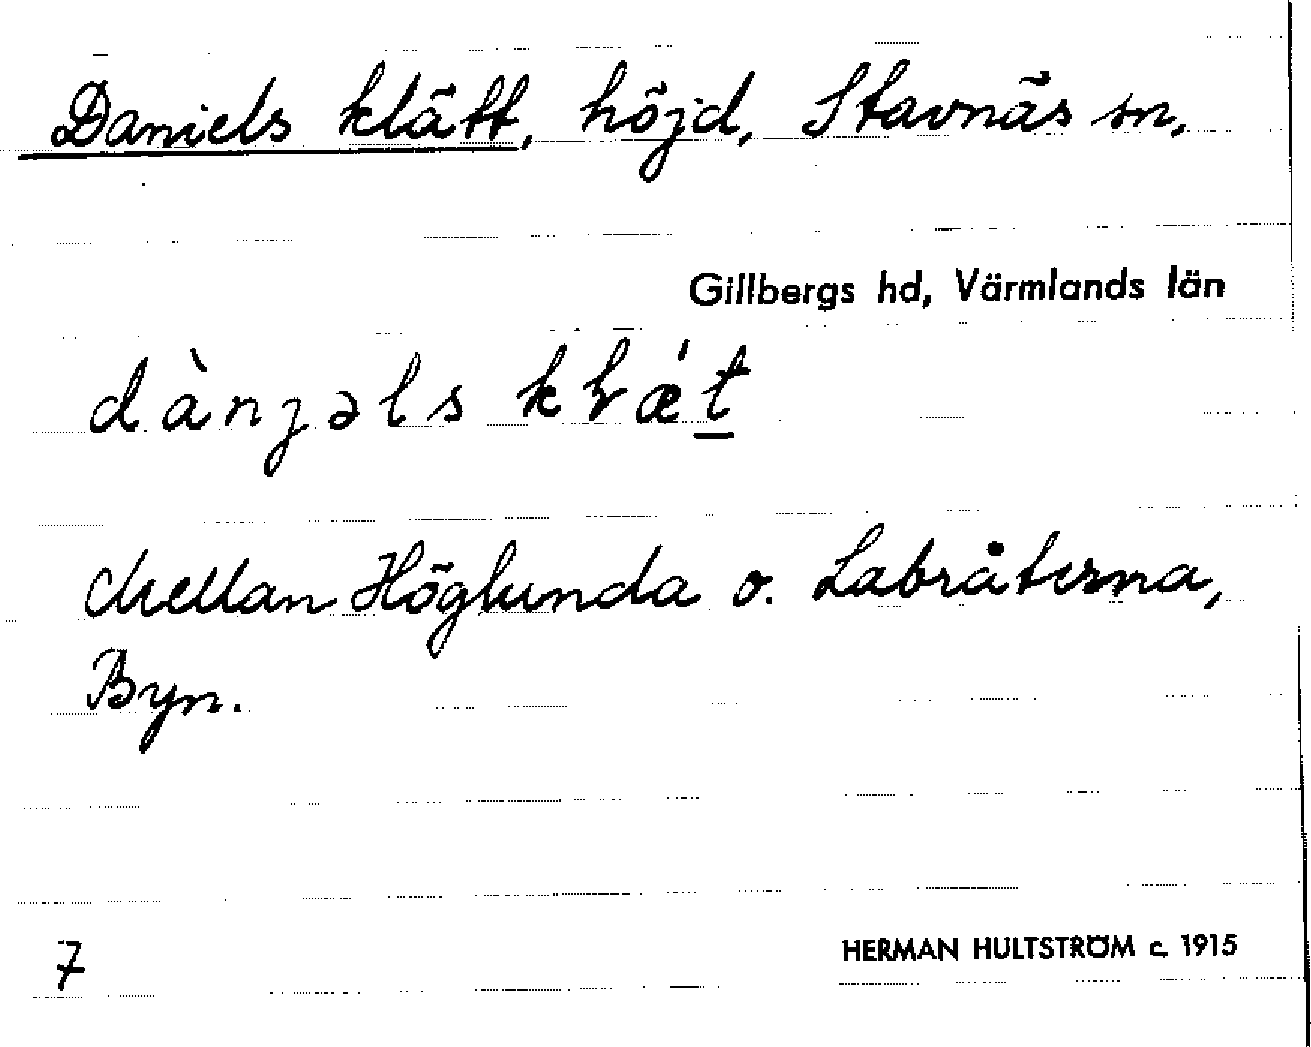 Daniels klätt, höjd, Stavnäs sn,
Gillbergs hd, Värmlands län
dànjəls kɽǽt
Mellan Höglunda o. Labråterna,
Byn.
7
HERMAN HULTSTRÖM c. 1915